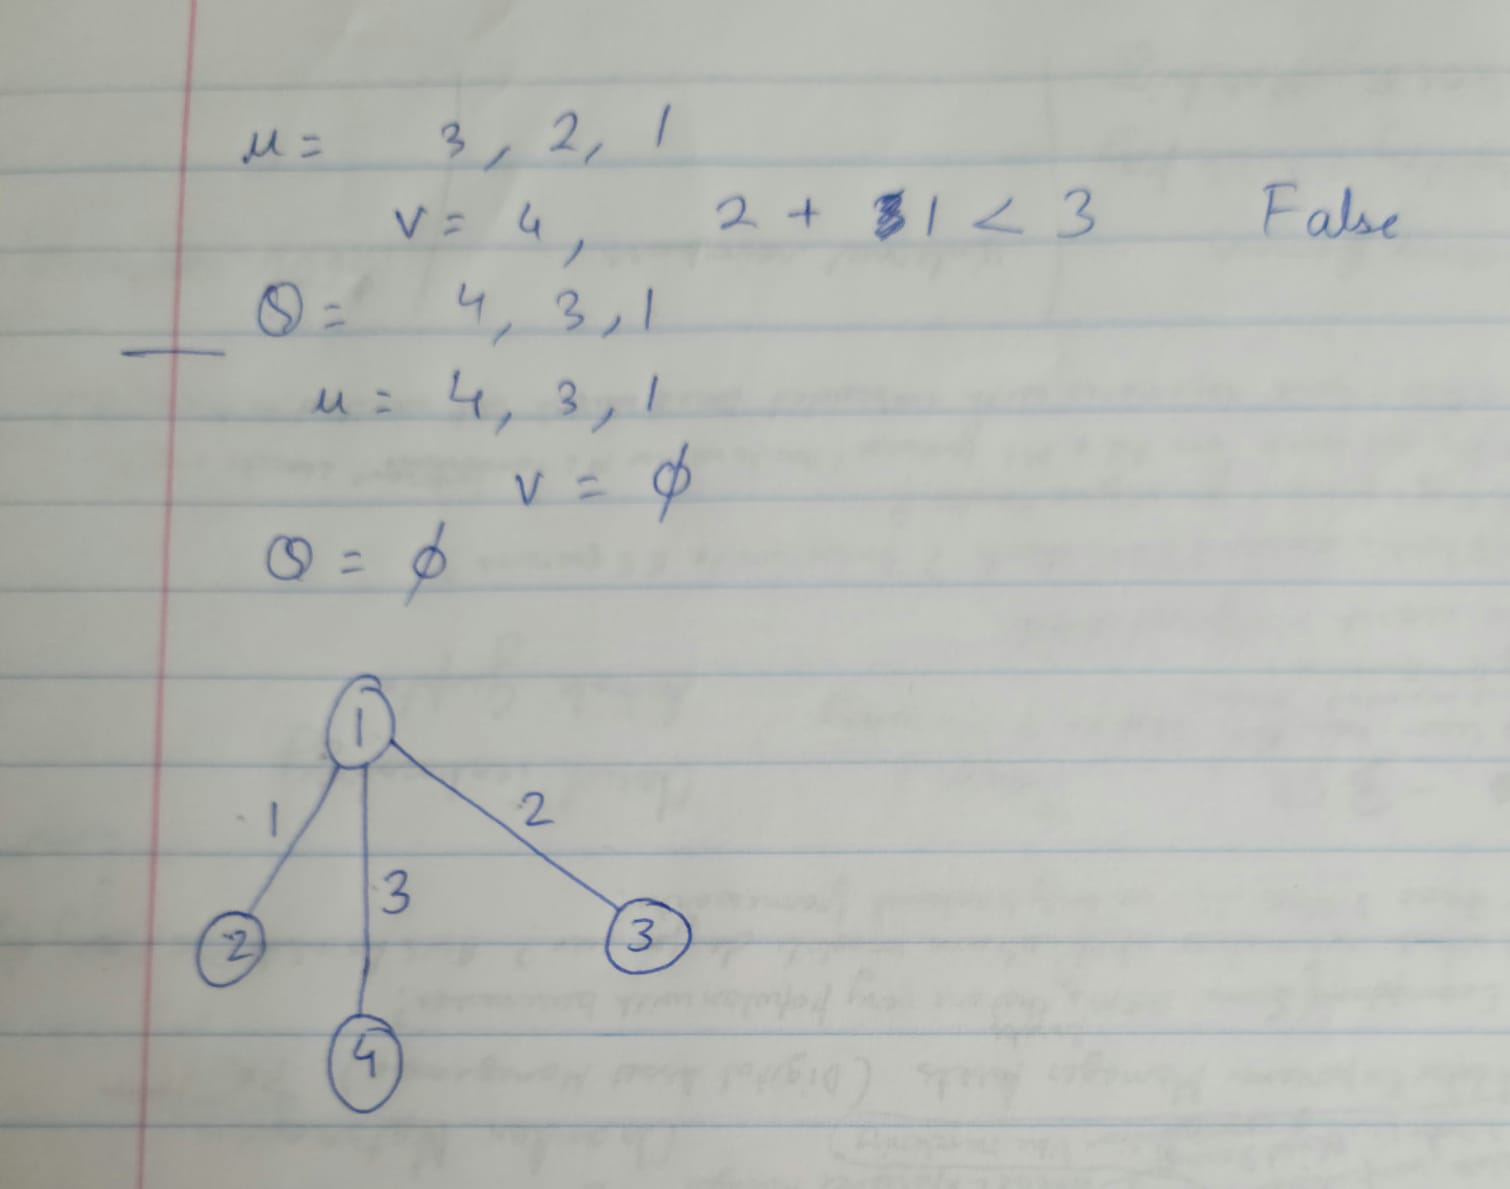 u = 3, 2, 1
v = 4, 2 + 1 < 3 False
Q = 4, 3, 1
u = 4, 3, 1
v = ϕ
Q = ϕ
1
1 2
3
2 3
4